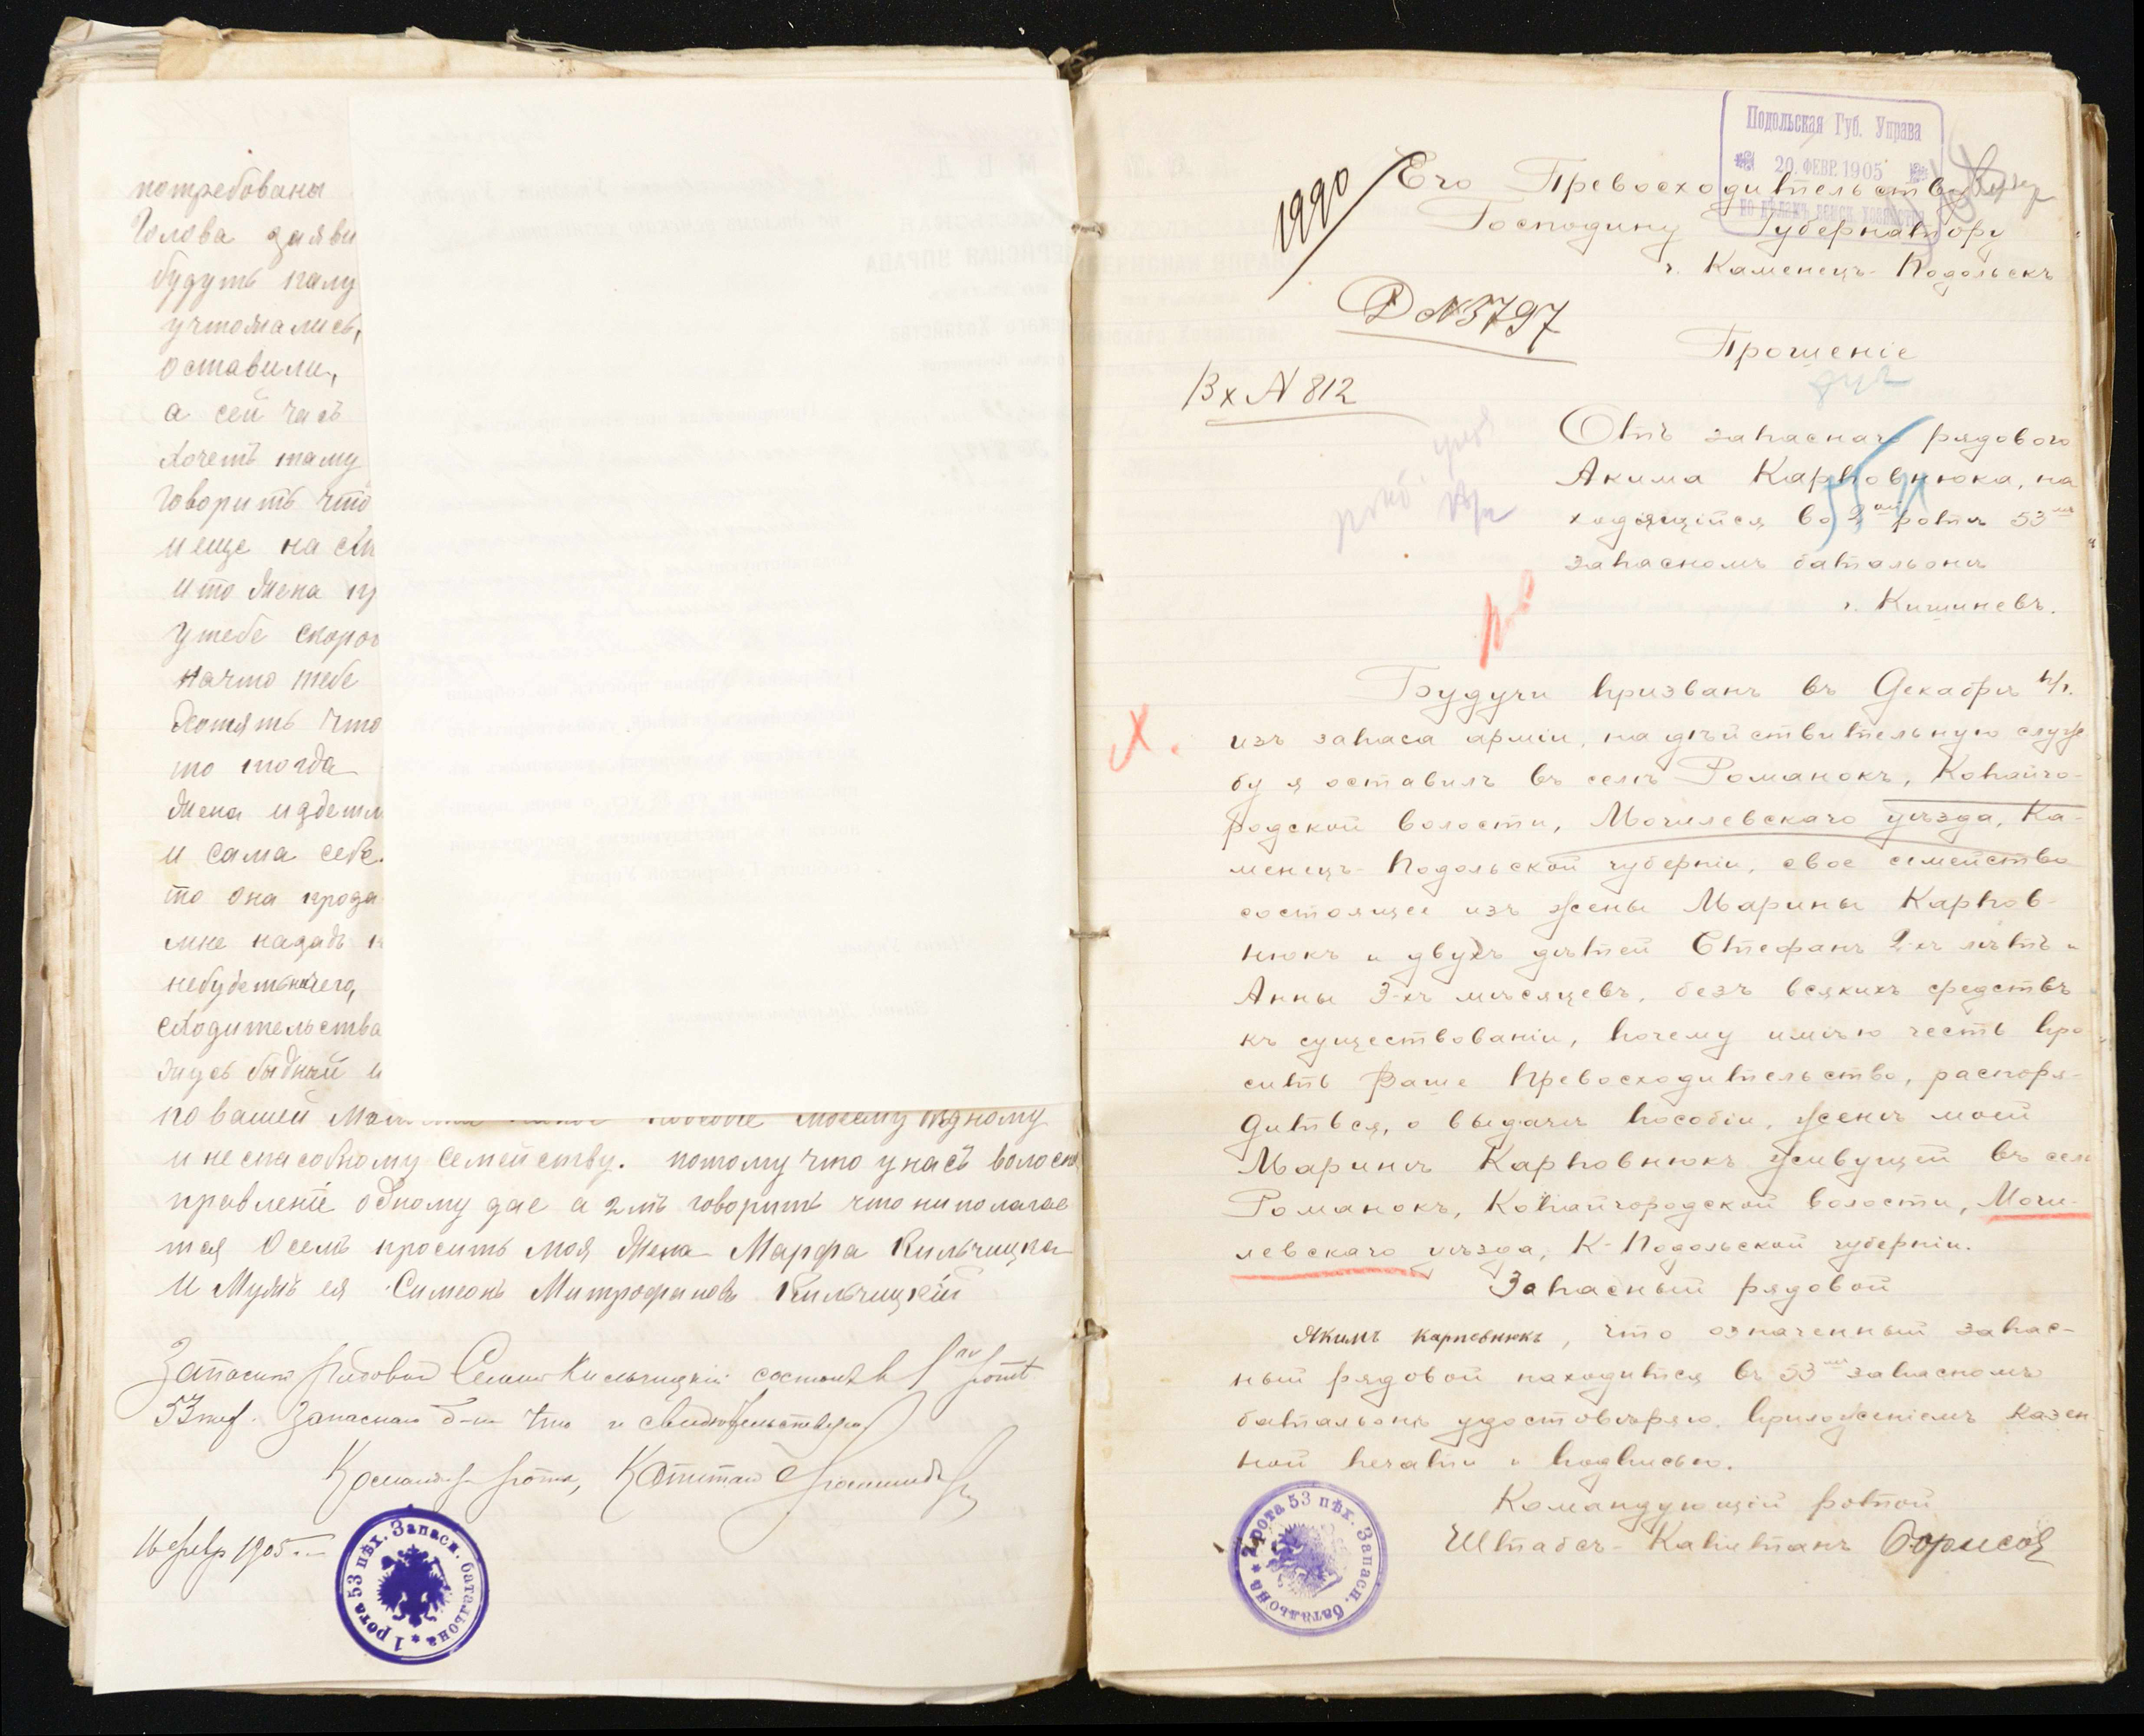 потребованы
Голова заяви
будуть палу
учтожались,
оставили,
а сей часъ
хочетъ таму
говорить что
и еще на
и то жена
у тебе скорог
начто тебе
хотять что
то тогда
жена издетм
и сама себе
то она прода
мне назадъ
небудетьничего,
сходительства
бидный и
по вашей пособіе моему бидному
и неспасобному семейству. потому что у насъ волосно
правленіе одному дае а 2мъ говорить что ниполагае
тся О семъ просить моя жена Марфа Кильчицка
И Мужъ ея Симеонъ Митрофановъ Кильчицкій
Запасный рядовой Семенъ Кильчицкій состоитъ в 1ой ротѣ
53 пех. Запаснаго б-на что и свидѣтельствую
Командиръ роты, Капитан
16 февр 1905
1 рота 53 пѣх. Запасн. баталіона
Подольская Губ. Управа
20. ФЕВР. 1905
1990
Его Превосходительству
Господину Губернатору
г. Каменецъ-Подольскъ
D №3797
Прошеніе
Вх N 812
Отъ запаснаго рядового
Акима Карповнюка, на
ходящійся во 2ой ротѣ 53мъ
запасномъ батальонѣ
г. Кишиневъ.
Будучи призванъ въ Декабрѣ п/г.
изъ запаса арміи, на дѣйствительную служ
бу я оставилъ въ селѣ Романокъ, Копайго-
родской волости, Могилевскаго уѣзда, Ка-
менецъ-Подольской губерніи, свое семейство
состоящее изъ жены Марины Карпов-
нюкъ и двухъ дѣтей Стефанъ 2-хъ лѣтъ и
Анны 3-хъ мѣсяцевъ, безъ всякихъ средствъ
къ существованіи, почему имѣю честь про
сить Ваше Превосходительство, распоря-
диться, о выдачѣ пособіи, женѣ моей
Маринѣ Карповнюкъ живущей въ селѣ
Романокъ, Копайгородской волости, Моги-
левскаго уѣзда, К-Подольской губерніи.
Запасный рядовой
Якимъ Карповнюкъ, что означенный запас-
ный рядовой находится въ 53мъ запасномъ
батальонѣ удостовѣряю, приложеніемъ казен
ной печати и подписью.
Командующій ротой
Штабсъ-Капитанъ Борисов
2 рота 53 пѣх. Запасн. баталіона